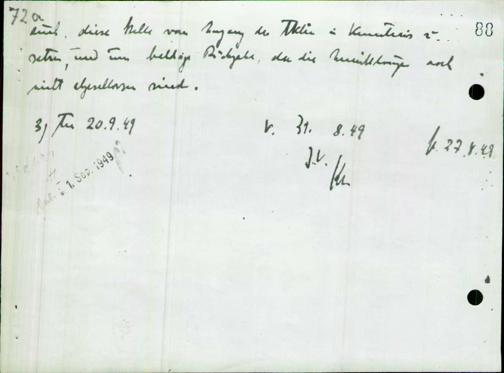 72a
88
auch, diese Stelle vom Eingang der Akten in Kenntnis zu
setzen, und um baldige Rückgabe, da die Ermittlungen noch
nicht abgeschlossen sind.
3) Frist 20.9.49
v. 31. 8.49
f. 27.8.49
1. Sep. 1949
J.V.